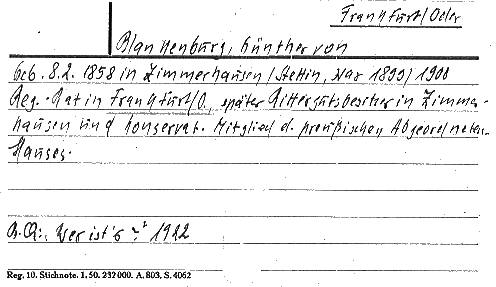 Frankfurt/Oder
Blankenburg, Günther von
Geb. 8.2. 1858 in Zimmerhausen/Stettin, war 1899/1900
Reg.-Rat in Frankfurt/O., später Rittergutsbesitzer in Zimmer-
hausen und konservat. Mitglied d. preußischen Abgeordneten-
Hauses.
B.Qu.: Wer ist's? 1922
Reg. 10. Stichnote. 1. 50. 232000. A. 803. S. 4062